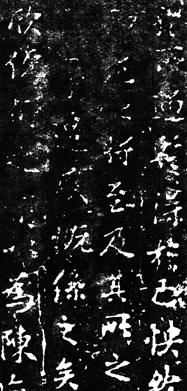 遇蹔得於己快然
之将至及其所之
遷感慨係之矣
欣俛仰之為陳